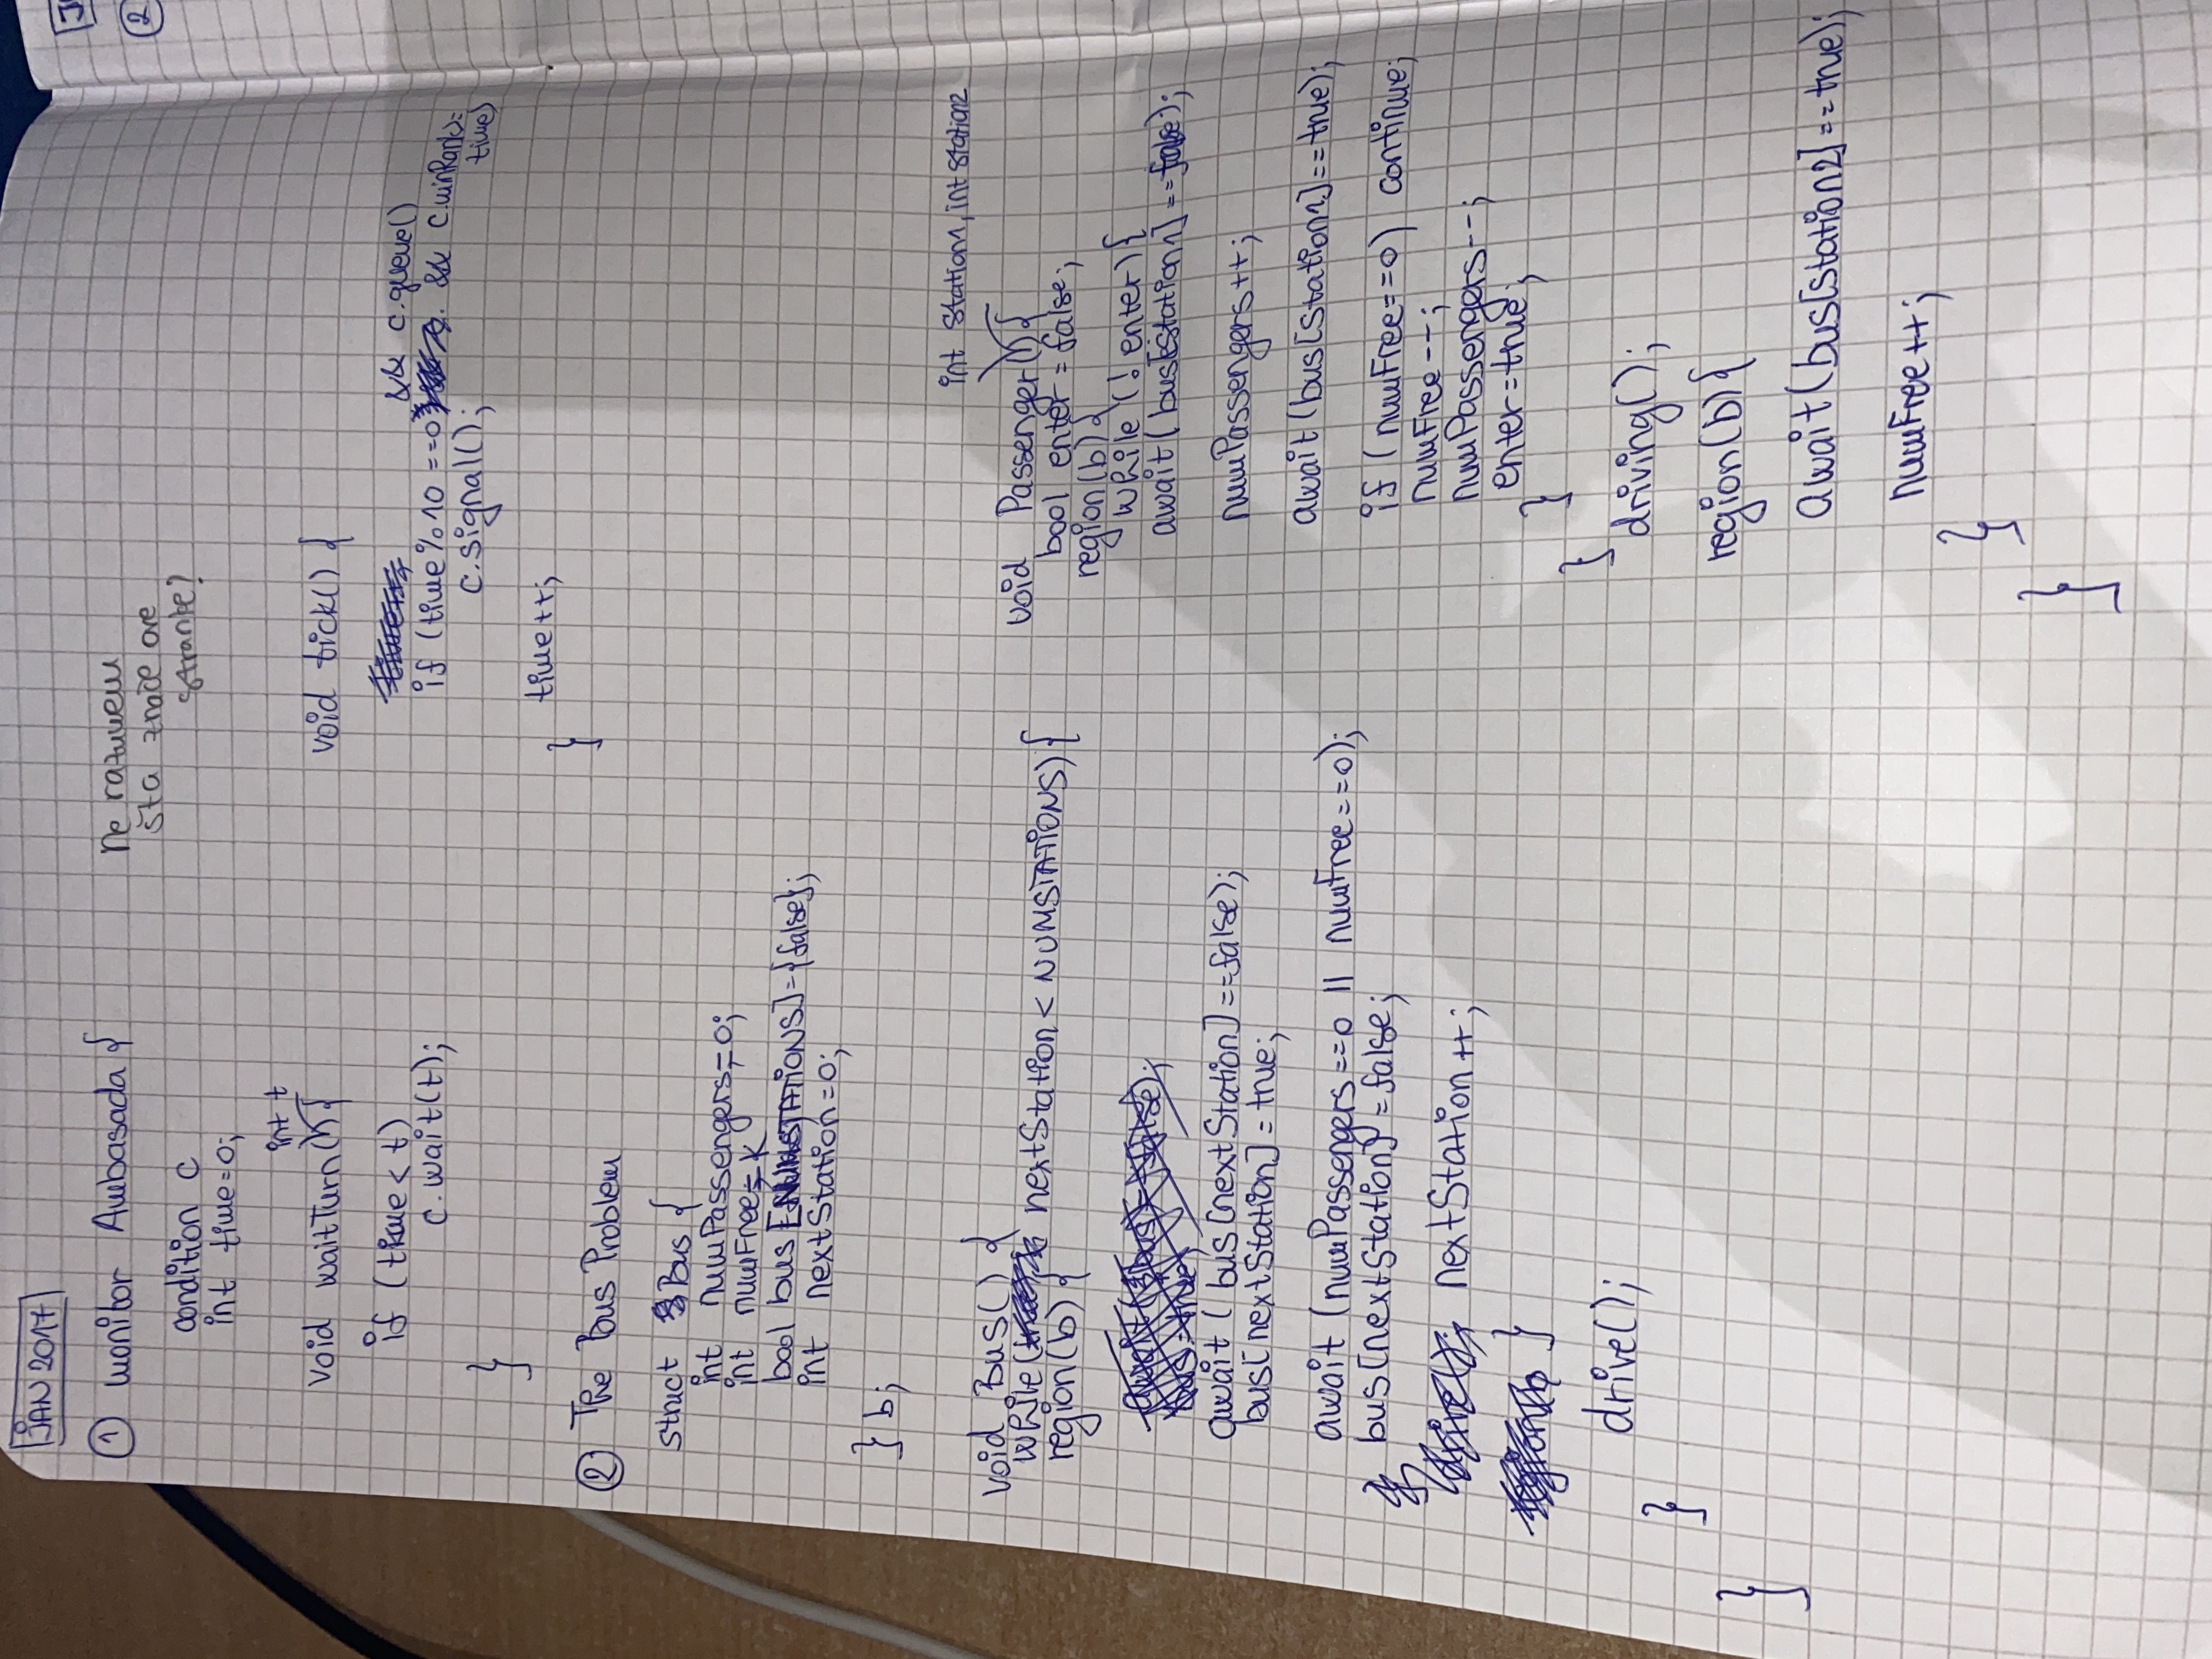 JAN 2017
① monitor Ambasada {
ne razumem
šta znače ove
stranke?
condition c
int time=0;
int t
void waitTurn() {
if (time < t)
c.wait(t);
}
void tick() {
&& c.queue()
if (time%10 ==0 && c.minRank>=
time)
c.signal();
time++;
}
② The Bus Problem
struct Bus {
int numPassengers=0;
int numFree=k
bool bus [NUMSTATIONS]={false};
int nextStation=0;
} b;
void Bus() {
while( nextStation < NUMSTATIONS) {
region(b) {
await ( bus [nextStation] ==false);
bus[nextStation] = true;
await (numPassengers==0 || numFree==0);
bus[nextStation] = false;
nextStation ++;
}
drive();
}
}
int station1, int station2
void Passenger() {
bool enter = false;
region(b) {
while (! enter) {
await( bus[station1] == false);
numPassengers++;
await (bus[station1] == true);
if (numFree==0) continue;
numFree --;
numPassengers--;
enter = true;
}
}
driving();
region(b) {
await(bus[station2] == true);
numFree++;
}
}
J
②